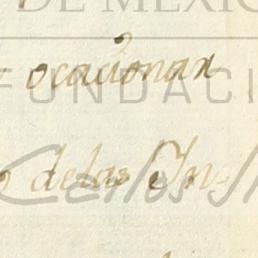 DE MÉXIC
ocacionar
FUNDACI
delas In
Carlos Sl